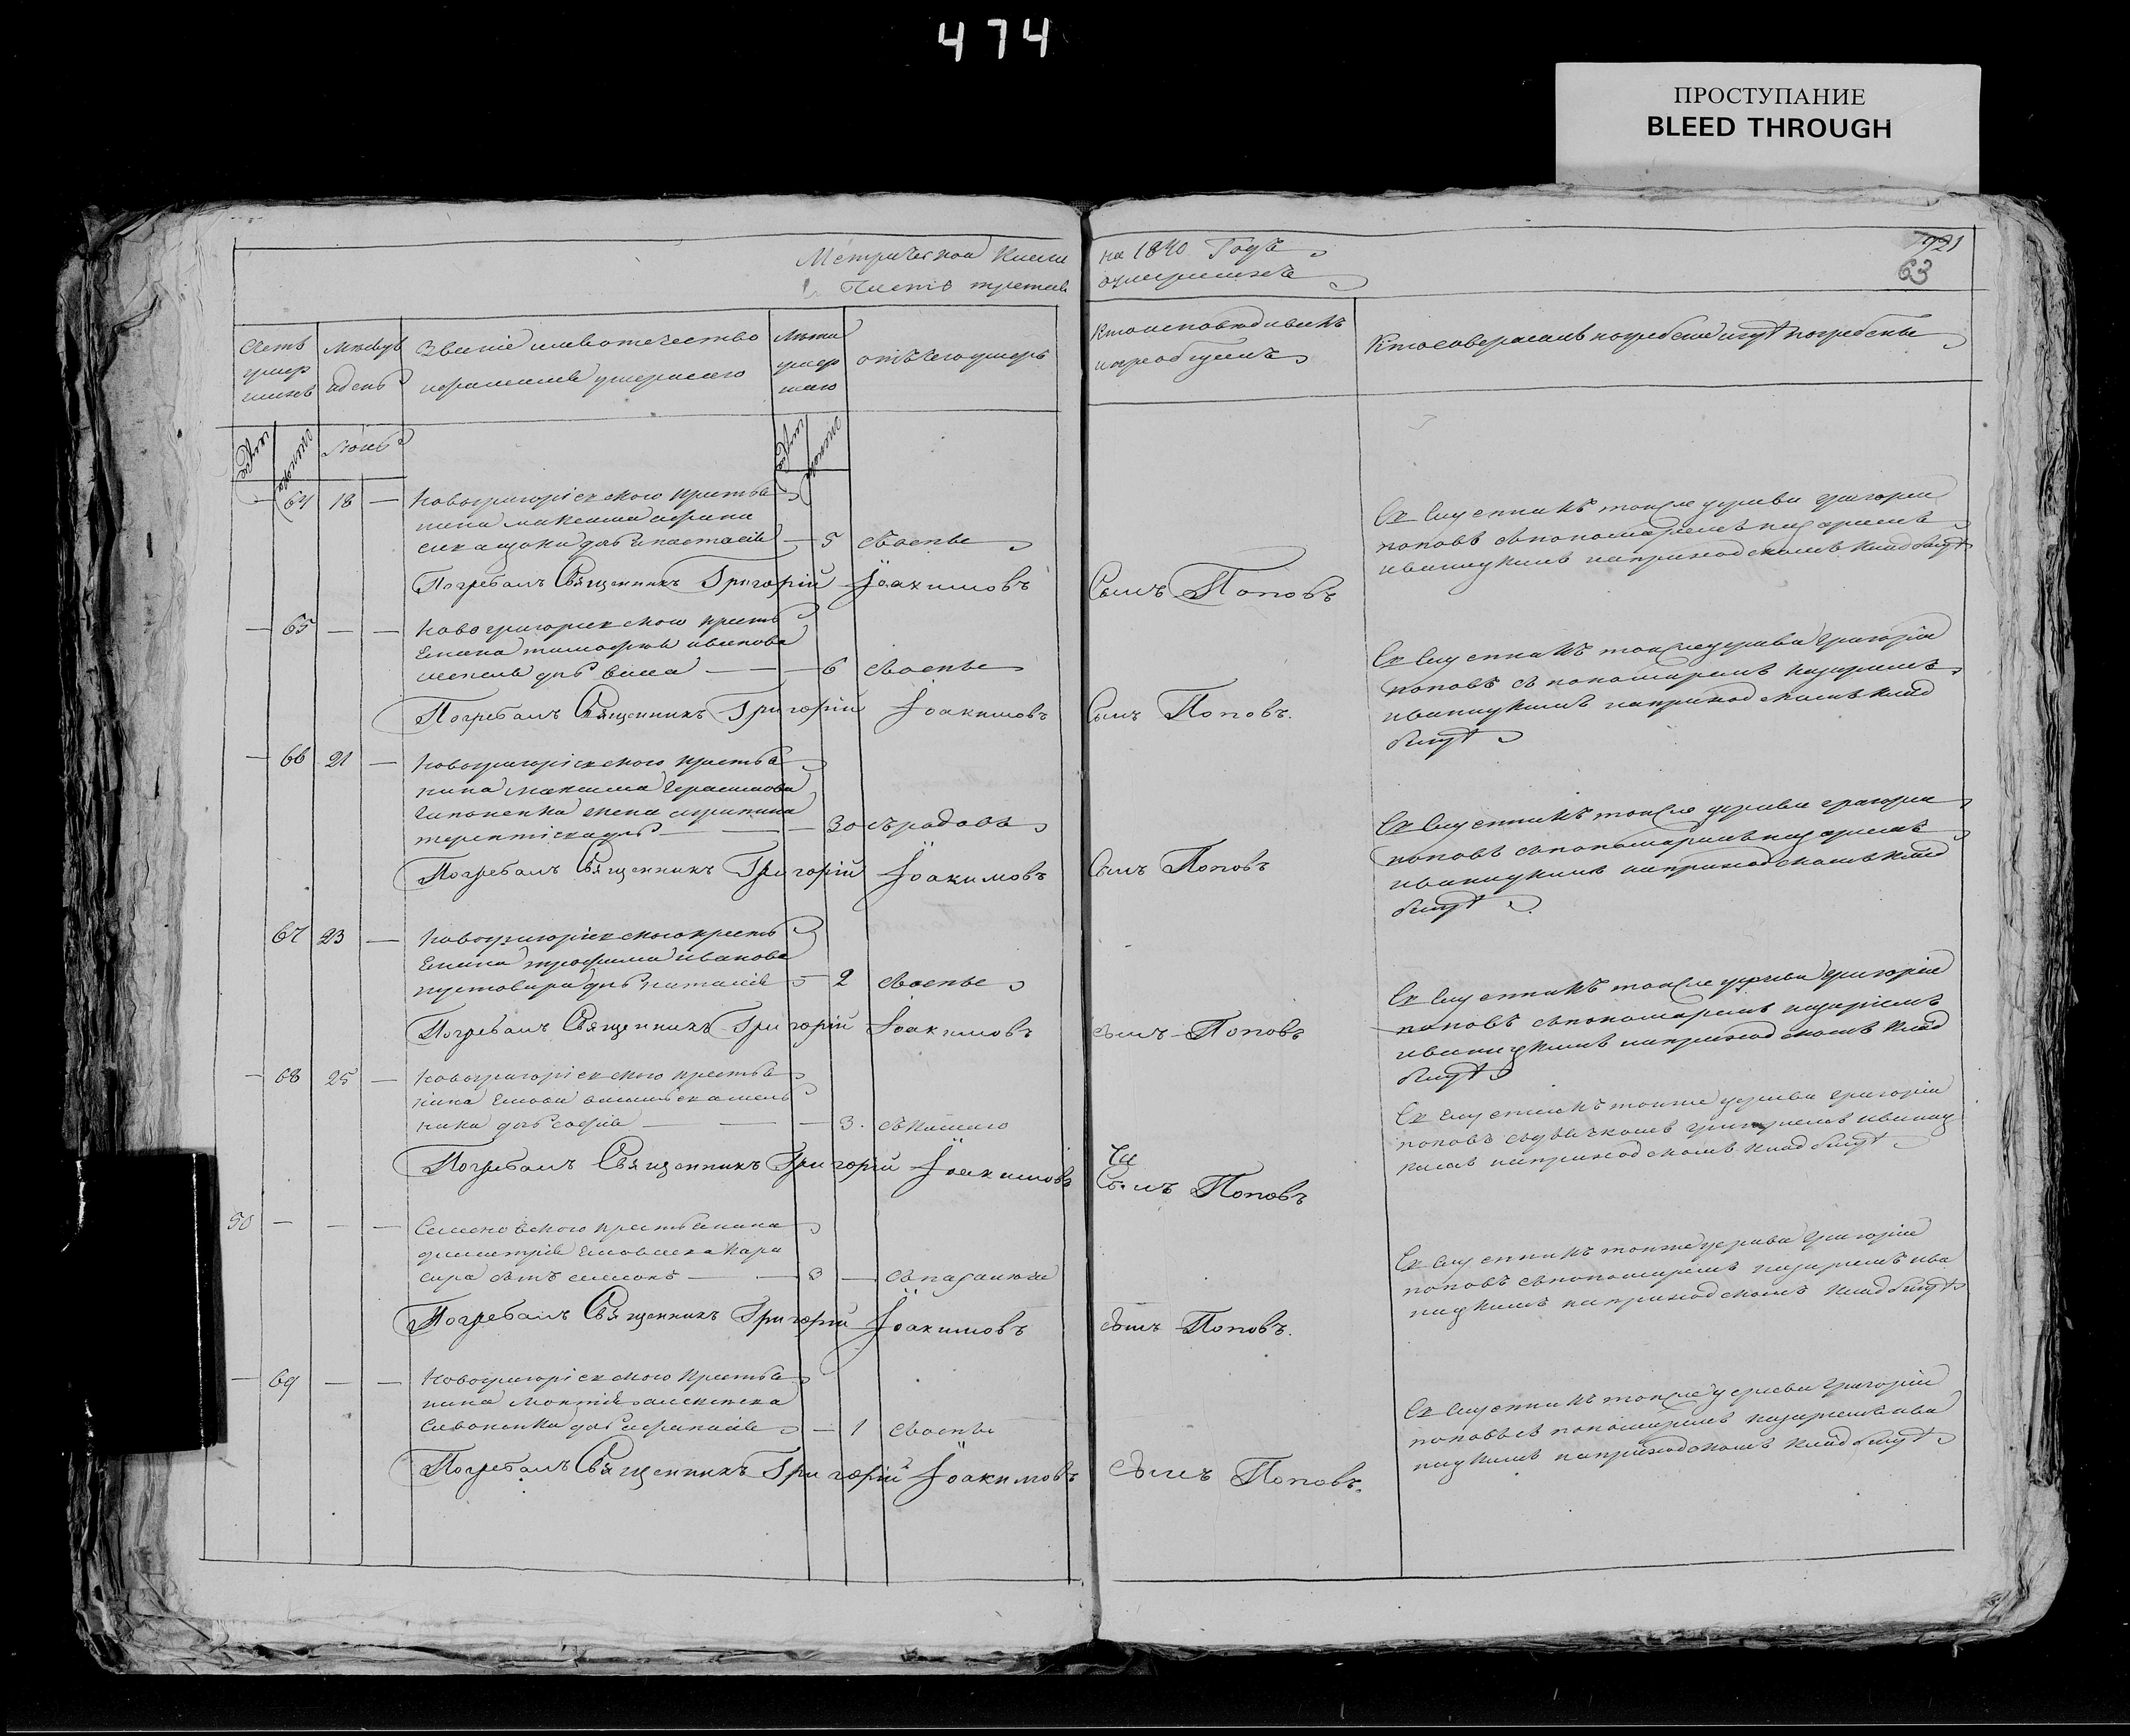 474
ПРОСТУПАНИЕ
BLEED THROUGH
Метрической Книги на 1840 Годъ
Часть третия о умершихъ
63
Счетъ умершихъ
Мѣсяцъ и день
Званіе имя отечество и фамилія умершаго
Лѣта умершаго
отъ чего умеръ
Кто исповѣдивалъ и пріобщалъ
Кто совершалъ погребеніе и гдѣ погребены
Іюль
— 64 18 — Новогригоріевского крестья
нина Максима
дочь Анастасія — 5 съ воспы
священникъ тойже церкви Григорій
Поповъ съ пономаремъ Назаріемъ
Иваницкимъ на приходскомъ кладбищѣ
Погребалъ Священникъ Григорій Іоакимовъ Сынъ Поповъ
— 65 — — Новогригориевского кресть
янина Тимофея Иванова
дочь — — 6 съ воспы
священникъ тойже церкви Григорій
Поповъ съ пономаремъ Назаріемъ
Иваницкимъ на приходскомъ клад
бищѣ
Погребалъ Священникъ Григорій Іоакимовъ Сынъ Поповъ.
— 66 21 — Новогригоріевского крестья
нина Максима Герасимова
Гапоненка жена
терентіева дочь — — 30 съ родовъ
священникъ тойже церкви Григорій
Поповъ съ пономаремъ Назаріемъ
Иваницкимъ на приходскомъ клад
бищѣ
Погребалъ Священникъ Григорій Іоакимовъ Сынъ Поповъ
67 23 — Новогригоріевского кресть
янина трофима Иванова
пустовара дочь Наталія — 2 съ воспы
священникъ тойже церкви Григорій
Поповъ съ пономаремъ Назаріемъ
Иваницкимъ на приходскомъ клад
бищѣ
Погребалъ Священникъ Григорій Іоакимовъ сынъ Поповъ
— 68 25 — Новогригоріевского крестья
нина
дочь Софія — — — 3. съ кашлю
священникъ тойже церкви Григорій
Поповъ съ дьячкомъ Григоріемъ Иваниц
кимъ на приходскомъ кладбищѣ
Погребалъ Священникъ Григорій Іоакимовъ Сынъ Поповъ
50 — — — Семеновского крестьянина
димитрія
сынъ Симеонъ — — 3 —
священникъ тойже церкви Григорій
Поповъ съ пономаремъ Назаріемъ Ива
ницкимъ на приходскомъ кладбищѣ
Погребалъ Священникъ Григорій Іоакимовъ сынъ Поповъ.
— 69 — — Новогригоріевского крестья
нина
дочь — 1 съ воспы
священникъ тойже церкви Григорій
Поповъ съ пономаремъ Назаріемъ Ива
ницкимъ на приходскомъ кладбищѣ
Погребалъ Священникъ Григорій Іоакимовъ сынъ Поповъ.